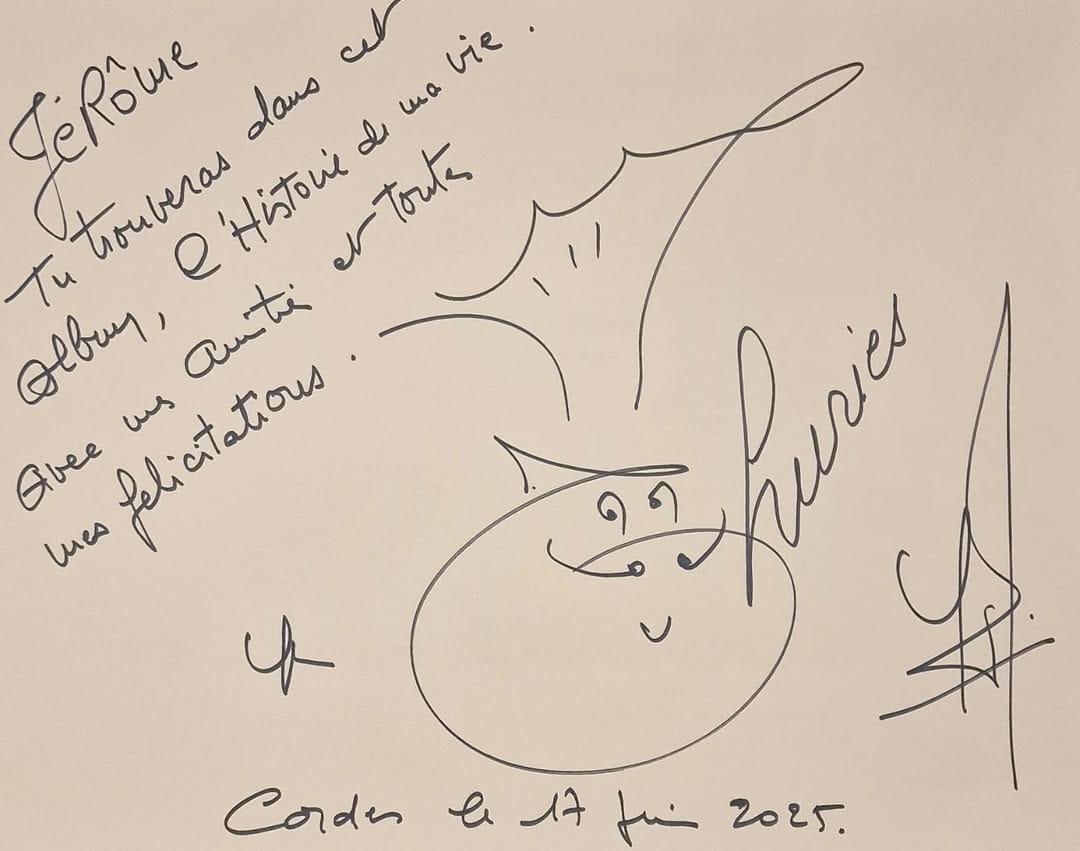 JéRôme
Tu trouveras dans cet
Album, l'Histoire de ma vie.
Avec mes amitié et toutes
mes felicitations.
Thuries
Cordes le 17 Juin 2025.